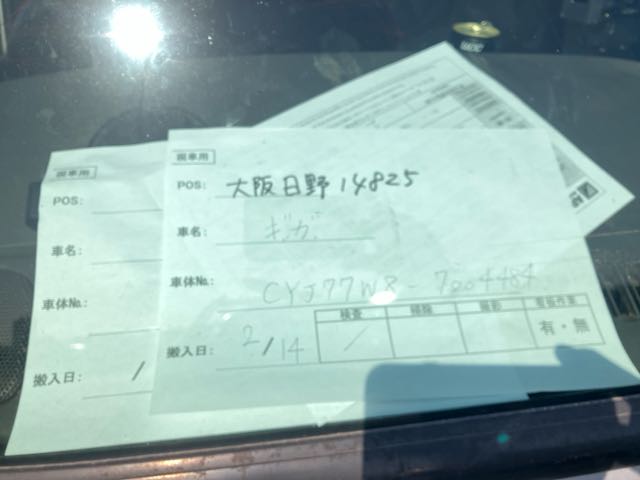 親車用
POS: 大阪日野14825
車名: ギガ
車体No.: CYJ77W8-7004484
検査 掃除 撮影 看板作業
搬入日: 2/14 / 有・無
POS:
車名:
車体No.:
搬入日: /